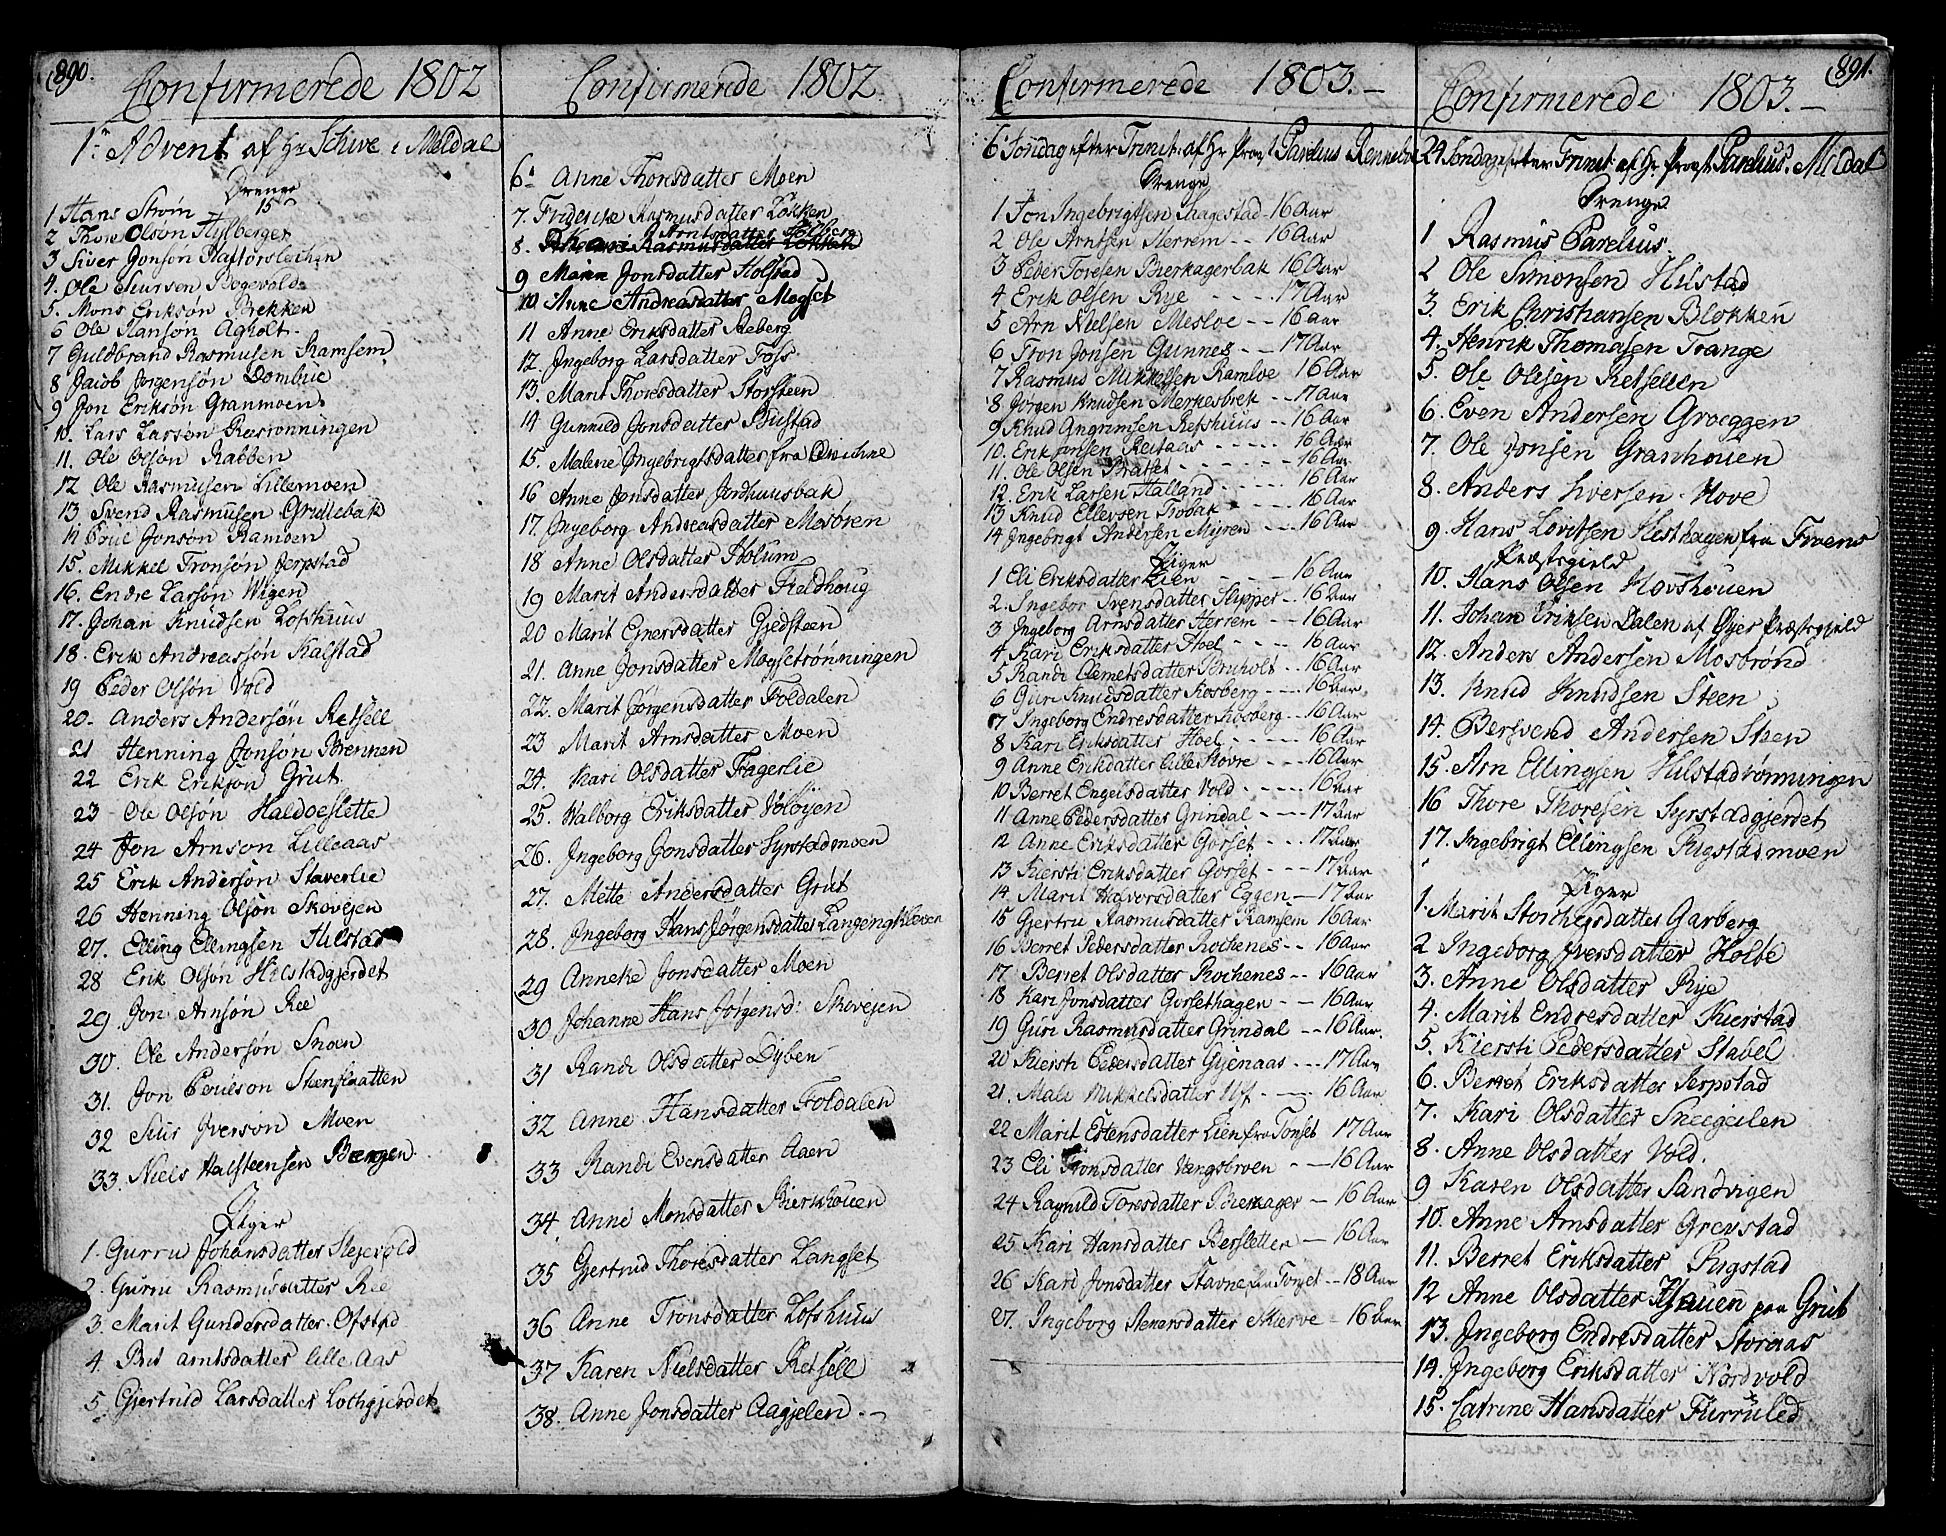 890.
Confirmerede 1802
1te Advent af Hr Schive i Meldal
Drenge
1 Hans Strøm 15
2 Thore Olsøn Hylberget
3 Siver Jonsøn
4. Ole Siursen Bogevold
5. Mons Eriksøn Bekken
6 Ole Hansøn Agholt.
7 Guldbrand Rasmusen Ramsem
8 Jacob Jørgensøn Dombue
9 Jon Eriksøn Granmoen
10. Lars Larsøn Rasrønningen
11. Ole Olsøn Rabben
12 Ole Rasmusen Lillemoen
13 Svend Rasmusen Grutlebak
14 Poul Jonsøn Ramoen
15. Mikkel Tronsøn Jerpstad
16. Endre Larsøn Wigen
17. Johan Knudsen Lofshuus
18. Erik Andreassøn Kalstad
19 Peder Olsøn Vold
20- Anders Andersøn Retsell
21 Henning Jonsøn Brennen
22 Erik Eriksøn Grut
23 Ole Olsøn Haldoeslette
24 Jon Arnson Lilleaas
25 Erik Andersøn Staverlie
26 Henning Olsøn Skovejen
27. Elling Ellingsen Hilstad
28 Erik Olsøn Hilstadgjerdet
29 Jon Arnsøn Ree
30. Ole Andersøn Snoan
31. Jon Poulson Steenslaatten
32 Siur Iversøn Moen
33. Niels Halsteensen Bergen
Piger
1. Gurru Johansdatter Slejevold
2. Guru Rasmusdatter Ree
3. Marit Gundersdatter Ofstad
4 Brit Arntsdatter lille Aas
5 Gjertrud Larsdatter Lochgjerdet
Confirmerede 1802.
6 Anne Thoresdatter Moen
7. Friderike Rasmusdatter Løkken
8. Kari Arntsdatter Solberg
9 Maren Jonsdatter Holstad
10 Anne Andreasdatter Mogset
11 Anne Eriksdatter Reberg
12. Ingeborg Larsdatter Foss
13. Marit Thoresdatter Storsteen
14 Gunnild Jonsdatter Bustad
15. Malene Ingebrigtsdatter fra Qvichne
16 Anne Jonsdatter Jordhuusbak
17. Ingeborg Andreasdatter Mosbroen
18 Anne Olsdatter Holum
19 Marit Andersdatter Fieldhoug
20 Marit Einersdatter Gjedsteen
21. Anne Jonsdatter Mogsetrønningen
22. Marit Jørgensdatter Foldalen
23 Marit Arnsdatter Moen
24. Kari Olsdatter Fagerlie
25. Walborg Eriksdatter Voløyen
26. Ingeborg Jonsdatter Syrstadmoen
27. Mette Andersdatter Grut
28. Ingeborg Hans Jørgensdatter
29 Anneke Jonsdatter Moen
30. Johanne Hans Jørgensd: Skovejen
31 Randi Olsdatter Dyben
32 Anne Hansdatter Foldalen
33 Randi Evensdatter Aaen
34. Anne Monsdatter Bierkhouen
35 Gjertrud Thoresdatter Langset
36 Anne Tronsdatter Lofshuus
37 Karen Nielsdatter Retsell
38. Anne Jonsdatter Aagjelen
Confirmerede 1803.
6 Søndag efter Trinit: af Hr Provst Parelius Renneboe
Drenge
1 Jon Ingebrigtsen Hagestad 16 Aar
2 Ole Arntsen Herrem 16 Aar
3 Peder Toresen Bierkagerbak 16 Aar
4. Erik Olsen Rye 17 Aar
5 Arn Nielsen Mesloe 16 Aar
6 Tron Jonsen Gunnes 17 Aar
7 Rasmus Mikkelsen Ramloe 16 Aar
8 Jørgen Knudsen Merkesbek 17 Aar
9 Knud Angrimsen Refshuus 16 Aar
10. Erik Jonsen Reitaas 16 Aar
11. Ole Olsen Brattet 16 Aar
12. Erik Larsen Halland 16 Aar
13 Knud Ellevsen Trobak 16 Aar
14 Ingebrigt Andersen Myren 16 Aar
Piger
1 Eli Eriksdatter Lien 16 Aar
2. Ingebor Svensdatter Slipper 16 Aar
3 Ingeborg Arnsdatter Herrem 16 Aar
4 Kari Eriksdatter Hoel 16 Aar
5 Randi Clemetsdatter Bruholt 16 Aar
6 Guri Knudsdatter Kosberg 16 Aar
7 Ingeborg Endresdatter Kosberg 16 Aar
8 Kari Eriksdatter Hoel 16 Aar
9 Anne Erikdatter lille Hovre 16 Aar
10 Berret Engelsdatter Vold 16 Aar
11 Anne Pedersdatter Grindal 17 Aar
12 Anne Eriksdatter Gorset 17 Aar
13 Kiersti Eriksdatter Gorset 17 Aar
14 Marit Halvorsdatter Eggen 17 Aar
15 Gjertru Rasmusdatter Ramsem 16 Aar
16 Berret Pedersdatter Rochenes 16 Aar
17 Berret Olsdatter Rochenes 16 Aar
18 Kari Jonsdatter Gorsethagen 16 Aar
19 Guri Rasmusdatter Grindal 16 Aar.
20 Kiersti Pedersdatter Gijenaas 17 Aar
21. Mali Mikkelsdatter Uff 16 Aar
22 Marit Estensdatter Lien fra Tønset 17 Aar
23 Eli Tronsdatter Vangsbroen 16 Aar
24 Ragnild Toresdatter Bierkager 16 Aar
25 Kari Hansdatter Bersletten 16 Aar
26 Kari Jonsdatter Stavne 18 Aar
27. Ingeborg Stenersdatter Skierve 16 Aar
891.
Confirmerede 1803.
24 Søndag efter Trinit af Hr Provst Parelius. Meldal
Drenge
1 Rasmus Parelius.
2 Ole Simonsen Hilstad
3. Erik Christiansen Blokken
4. Henrik Thomasen Trange
5. Ole Olesen Retsellen
6. Even Andersen Groeggen
7. Ole Jonsen Granhouen
8. Anders Iversen Hove
9. Hans Lovitsen Hesthagen fra Froens
Præstegield
10. Hans Olsen Hovshouen
11. Johan Eriksen Dalen af Øyer Præstegield
12. Anders Andersen Mosbrønd
13. Knud Knudsen Steen
14. Bersvend Andersen Steen
15. Arn Ellingsen Hilstadrønningen
16 Thore Thoresen Syrstadgjerdet
17. Ingebrigt Ellingsen Rugstadmoen
Piger
1. Marit Storchersdatter Garberg
2 Ingeborg Iversdatter Holbe
3. Anne Olsdatter Rye
4. Marit Endresdatter Kierstad
5. Kiersti Pedersdatter Stavel
6. Berret Eriksdatter Jerpstad
7. Kari Olsdatter Sneegeilen
8. Anne Olsdatter Vold.
9 Karen Olsdatter Sandvigen
10. Anne Arnsdatter Grevstad
11. Berret Eriksdatter Rugstad
12 Anne Olsdatter Hauen paa Grut
13. Ingeborg Endresdatter Storaas
14. Ingeborg Eriksdatter Nordvold
15. Catrine Hansdatter Furruled